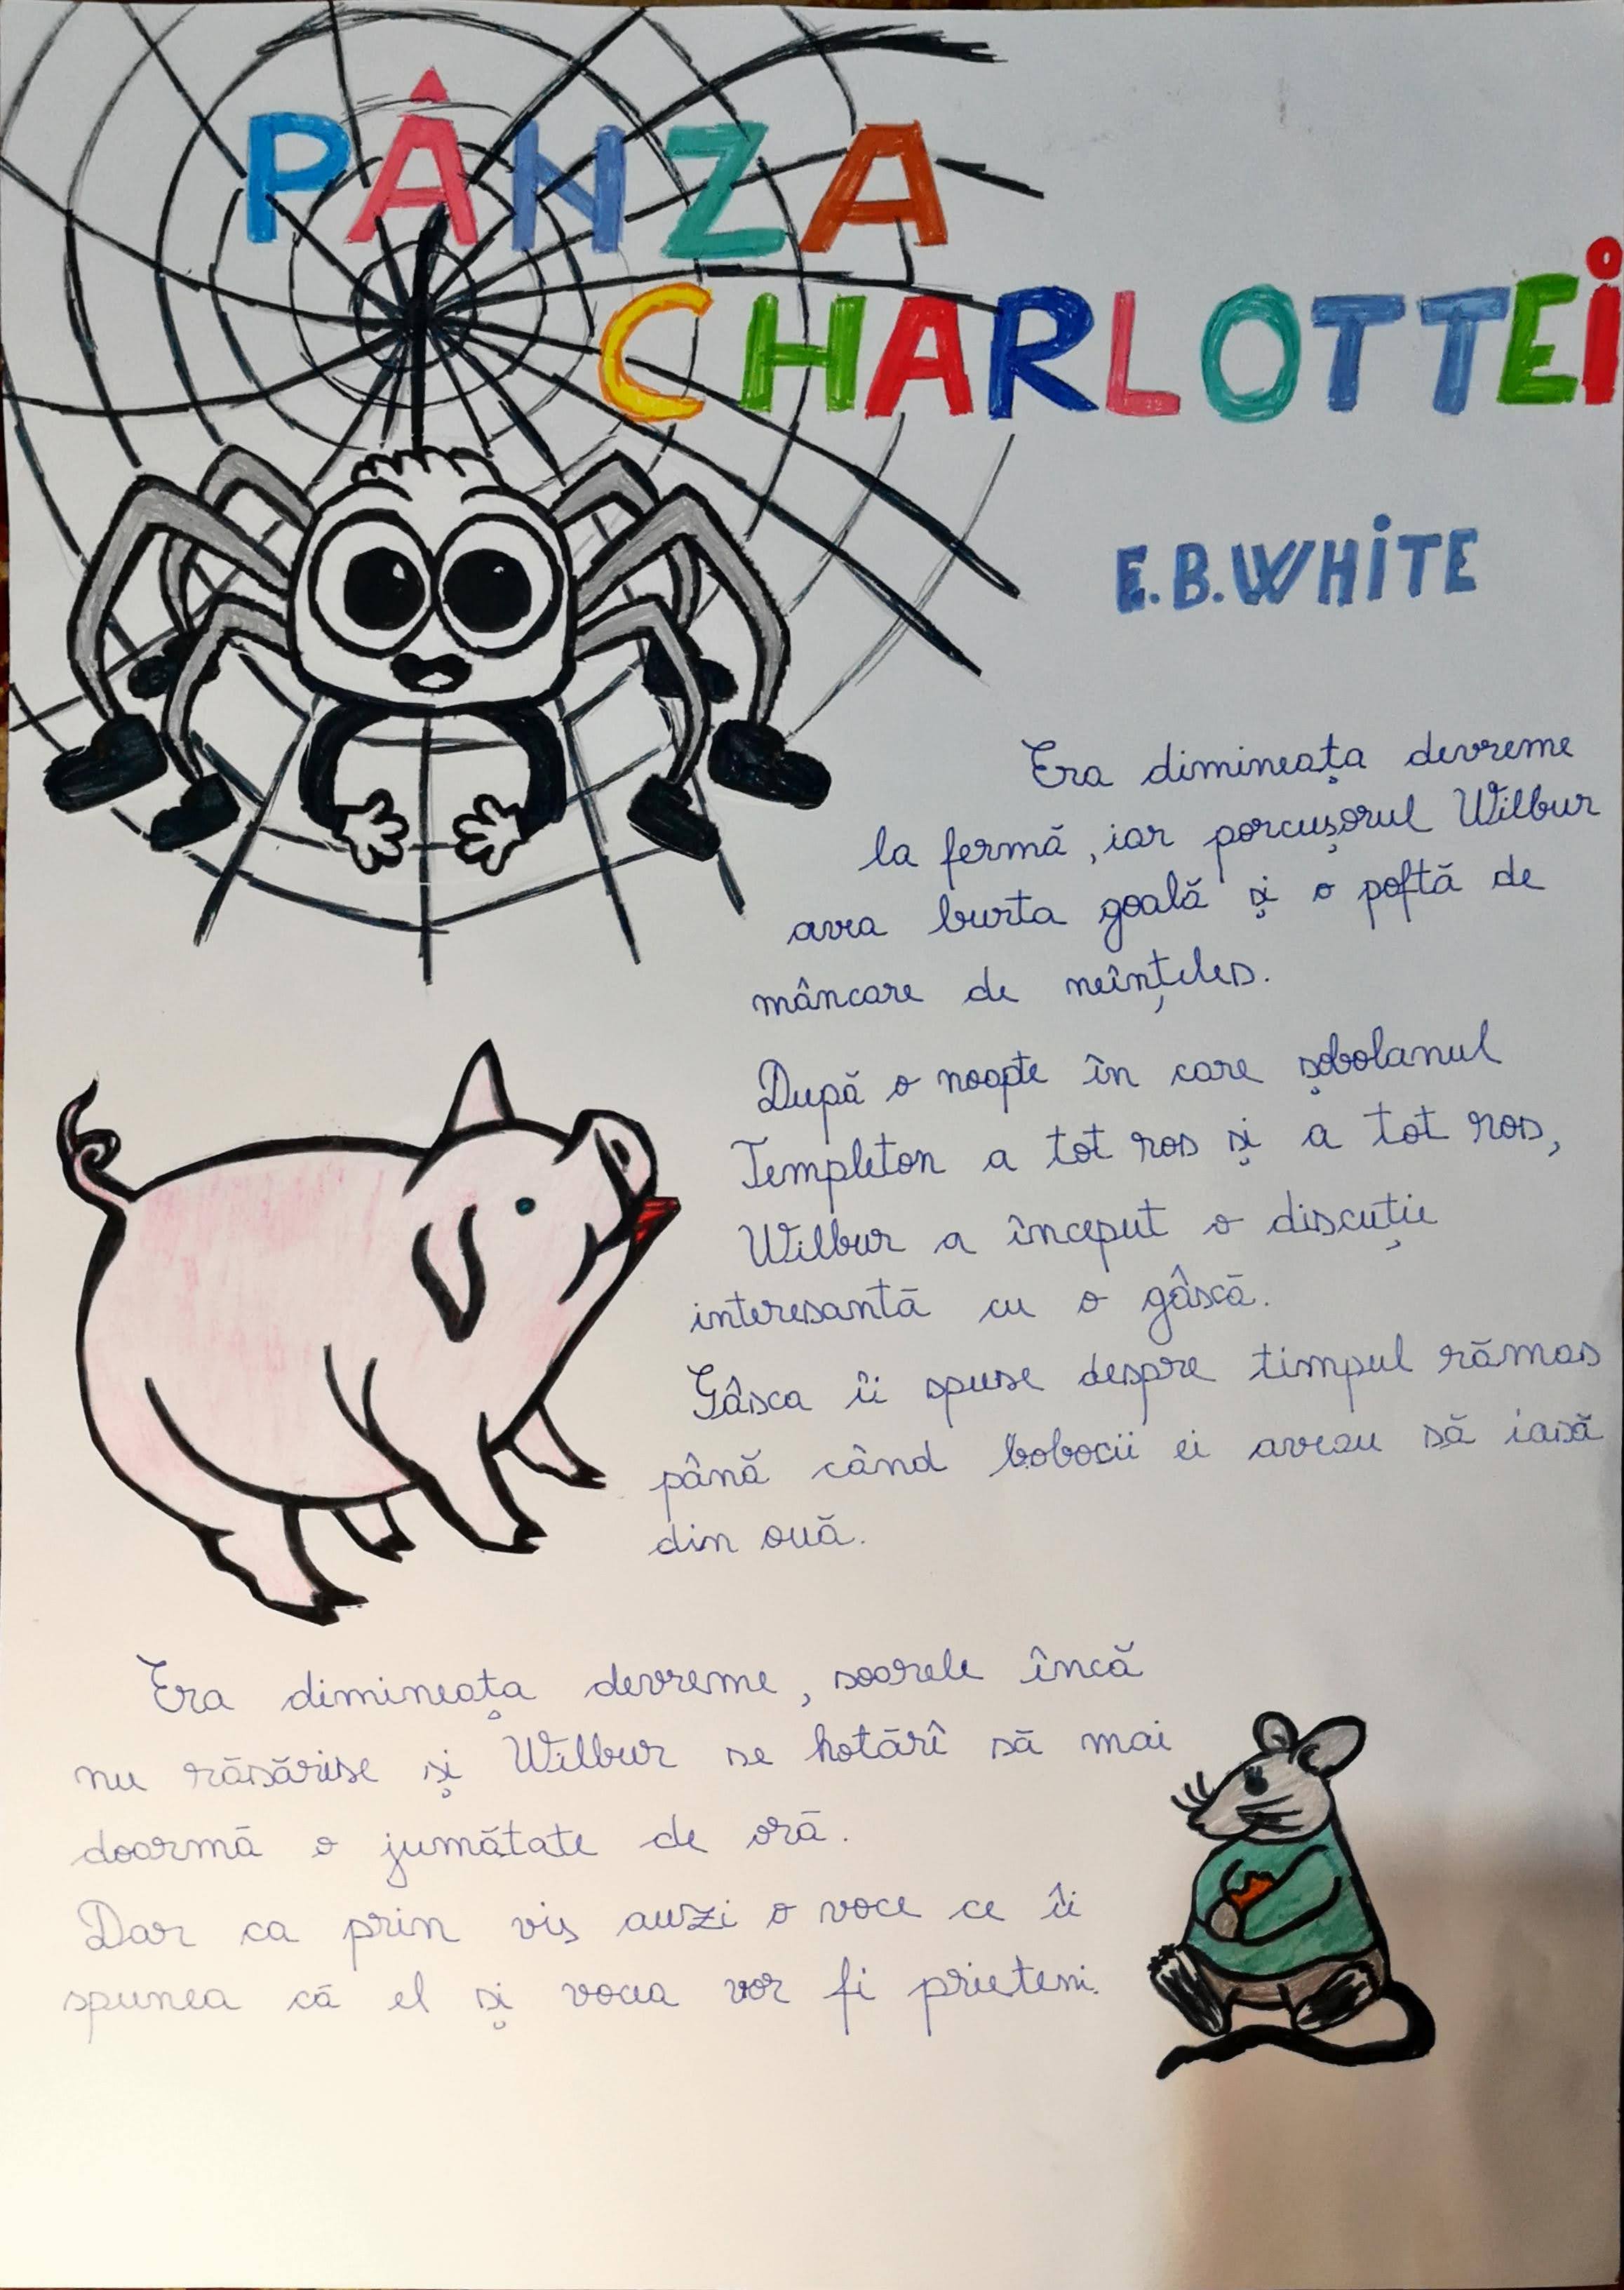 PÂNZA
CHARLOTTEI
E.B.WHITE
Era dimineața devreme
la fermă, iar porcușorul Wilbur
avea burta goală și o poftă de
mâncare de neînțeles.
După o noapte în care șobolanul
Templeton a tot ros și a tot ros,
Wilbur a început o discuție
interesantă cu o gâscă.
Gâsca îi spuse despre timpul rămas
până când bobocii ei aveau să iasă
din ouă.
Era dimineața devreme, soarele încă
nu răsărise și Wilbur se hotărî să mai
doarmă o jumătate de oră.
Dar ca prin vis auzi o voce ce îi
spunea că el și vocea vor fi prieteni.